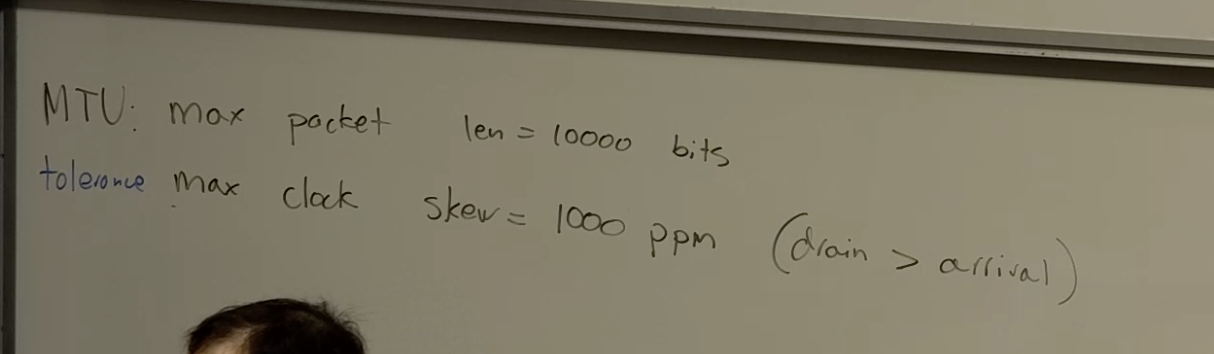 MTU: max packet len = 10000 bits
tolerance max clock skew = 1000 ppm (drain > arrival)